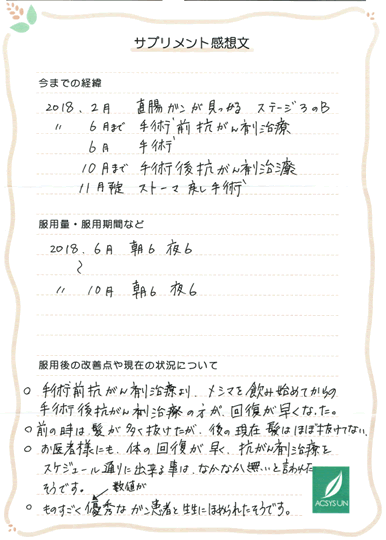 サプリメント感想文
今までの経緯
2018.2月 直腸ガンが見つかる ステージ3のB
〃 6月まで 手術前抗がん剤治療
6月 手術
10月まで 手術後抗がん剤治療
11月予定 ストーマ戻し手術
服用量・服用期間など
2018.6月 朝6 夜6
〜
〃 10月 朝6 夜6
服用後の改善点や現在の状況について
○ 手術前抗がん剤治療より、メシマを飲み始めてからの
手術後抗がん剤治療の方が、回復が早くなった。
○ 前の時は髪が多く抜けたが、後の現在 髪はほぼ抜けてない。
○ お医者様にも、体の回復が早く、抗がん剤治療を
スケジュール通りに出来る事は、なかなか無いと言われた
そうです。
数値が
○ ものすごく優秀なガン患者と先生にほめられたそうです。
ACSYS UN